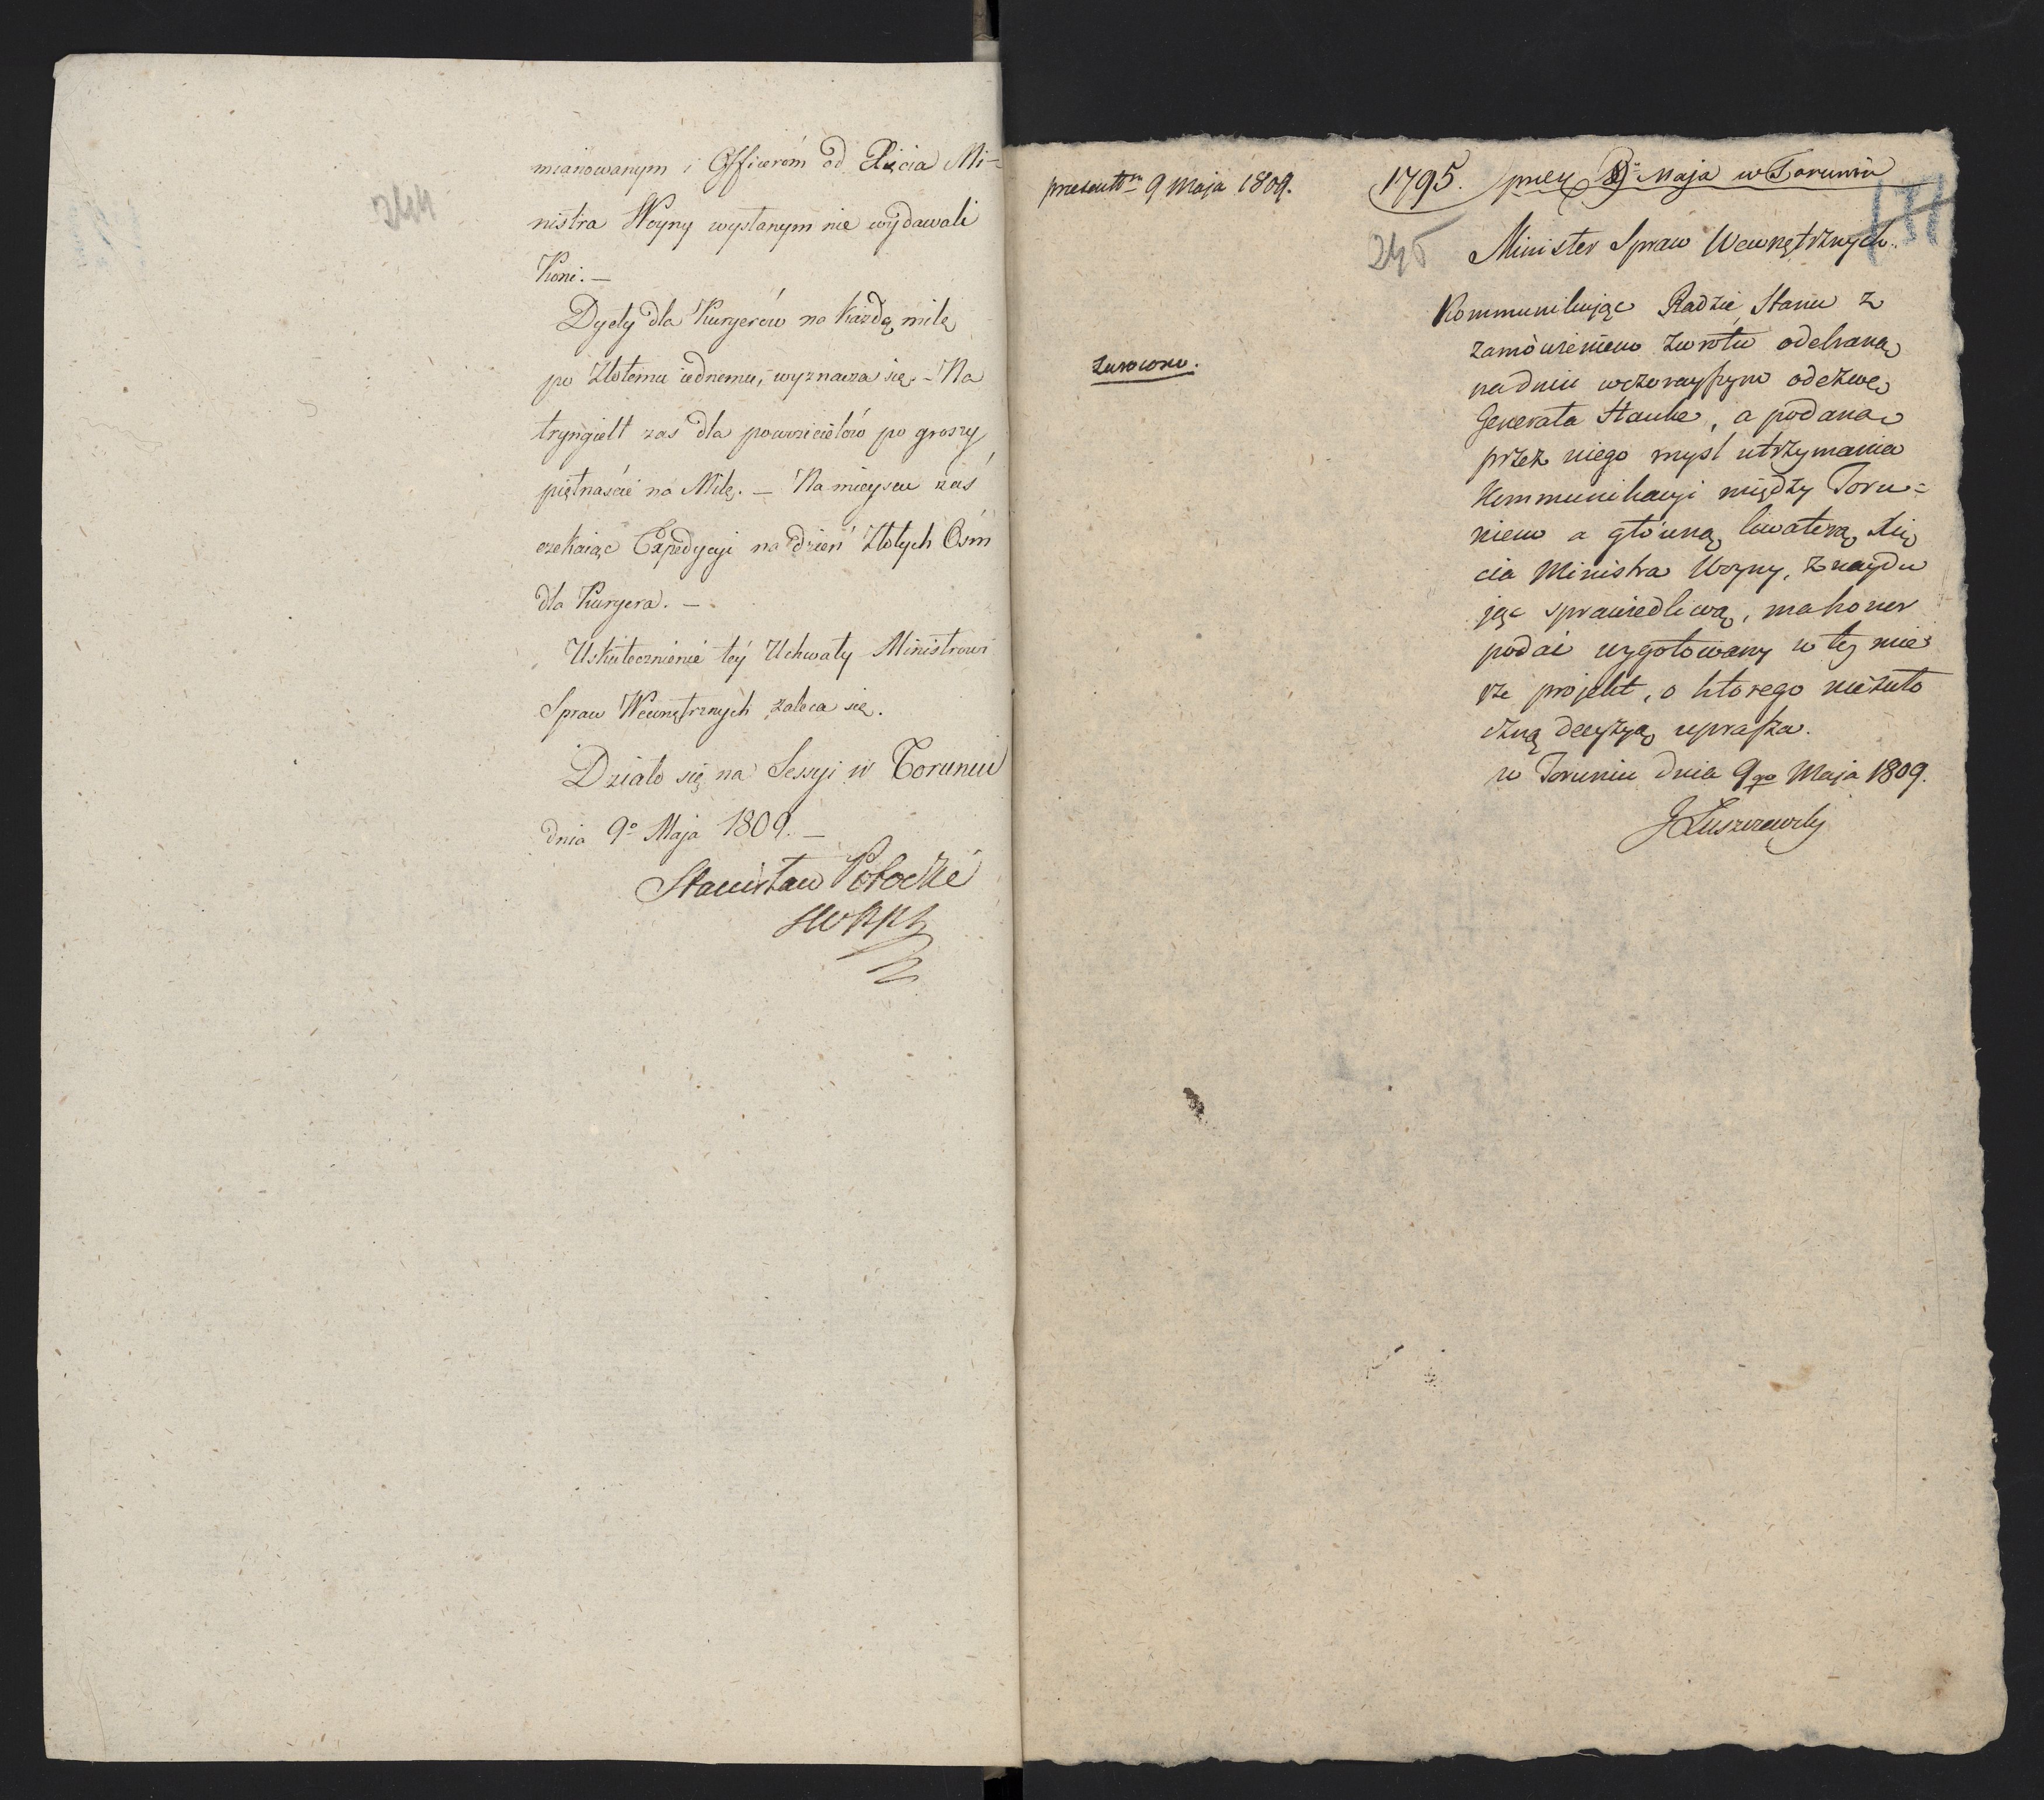 244
mianowanym i Officerom od Xięcia Mi-
nistra Woyny wysłanym nie wydawali
Koni. —
Dyety dla Kuryerów na każdą milę
po Złotemu iednemu, wyznacza się. - Na
tryngielt zaś dla powoziciełów po groszy
piętnaście na Milę. — Na mieyscu zaś
czekaiąc Expedycyi na dzień Złotych Ośm
dla Kuryera. —
Uskutecznienie tey Uchwały Ministrowi
Spraw Wewnętrznych zaleca się.
Działo się na Sessyi w Toruniu
dnia 9º Maja 1809. —
Stanisław Potocki
presentm 9 Maja 1809.
zwrócono.
1795. Maja w Toruniu
245
Minister Spraw Wewnętrznych.
Kommunikując Radzie Stanu z
zamówieniem zwrotu odebraną
na dniu wczorayszym odezwę
Generała Hauke, a podaną
przez niego mysl utrzymania
Kommunikacyi między Toru=
niem a główną kwaterą Xię
cia Ministra Woyny, znaydu
jąc sprawiedliwą, ma honor
podać wygotowany w tej mie
rze projekt, o którego niezwło
czną decyzyą uprasza.
w Toruniu dnia 9go Maja 1809.
J Łuszczewsky